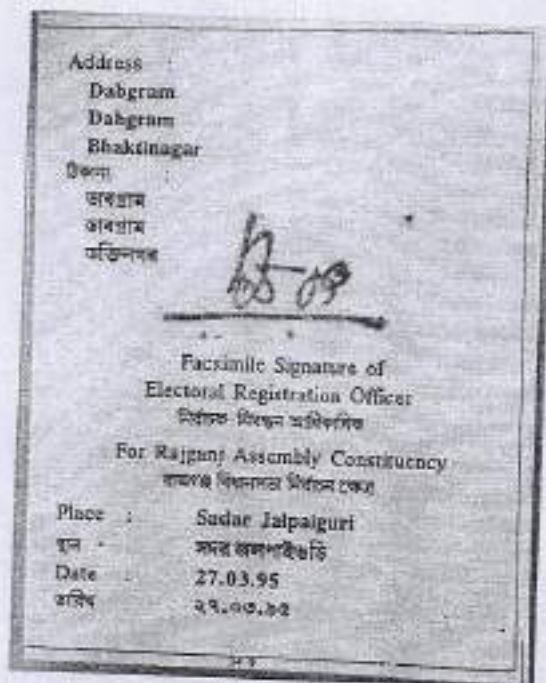 Address :
Dabgram
Dabgram
Bhaktinagar
ঠিকানা :
ডাবগ্রাম
ডাবগ্রাম
ভক্তিনগর
Facsimile Signature of
Electoral Registration Officer
নির্বাচক নিবন্ধন আধিকারিক
For Rajganj Assembly Constituency
রাজগঞ্জ বিধানসভা নির্বাচন ক্ষেত্র
Place : Sadar Jalpaiguri
স্থান - সদর জলপাইগুড়ি
Date : 27.03.95
তারিখ ২৭.০৩.৯৫